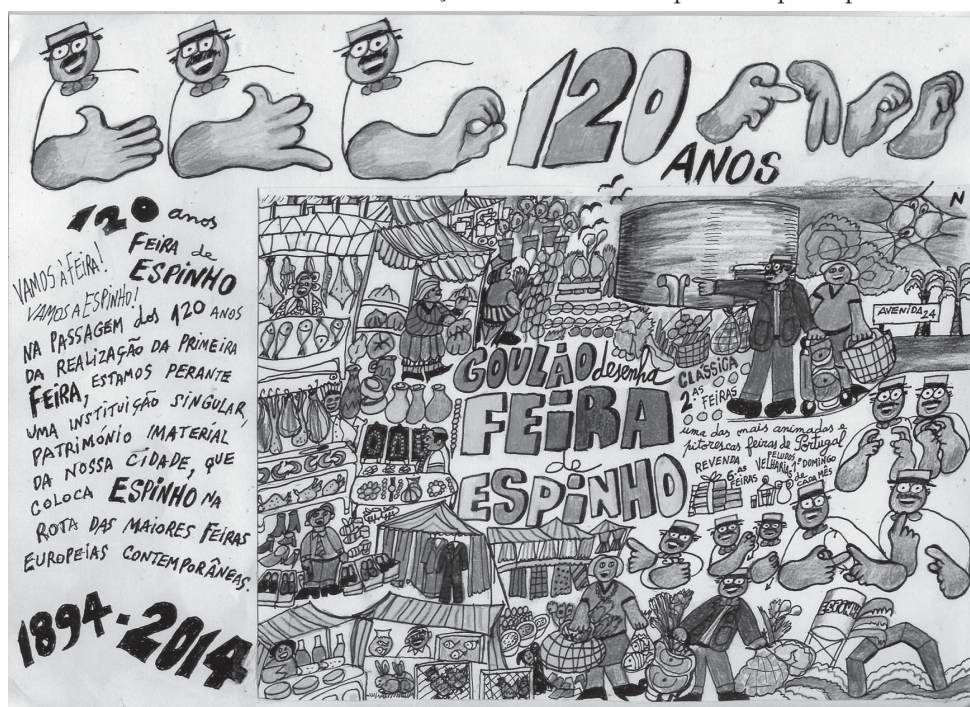 120
ANOS
120 anos
FEIRA de
ESPINHO
VAMOS À FEIRA!
VAMOS A ESPINHO!
NA PASSAGEM dos 120 ANOS
DA REALIZAÇÃO DA PRIMEIRA
FEIRA, ESTAMOS PERANTE
UMA INSTITUIÇÃO SINGULAR,
PATRIMÓNIO IMATERIAL
DA NOSSA CIDADE, QUE
COLOCA ESPINHO NA
ROTA DAS MAIORES FEIRAS
EUROPEIAS CONTEMPORÂNEAS.
1894-2014
N
AVENIDA 24
GOULÃO desenha
FEIRA
de
ESPINHO
CLÁSSICA
2.AS FEIRAS
uma das mais animadas e
pitorescas feiras de Portugal
REVENDA
6.as
FEIRAS
VELHARIAS
1º DOMINGO
de
CADA MÊS
ESPINHO